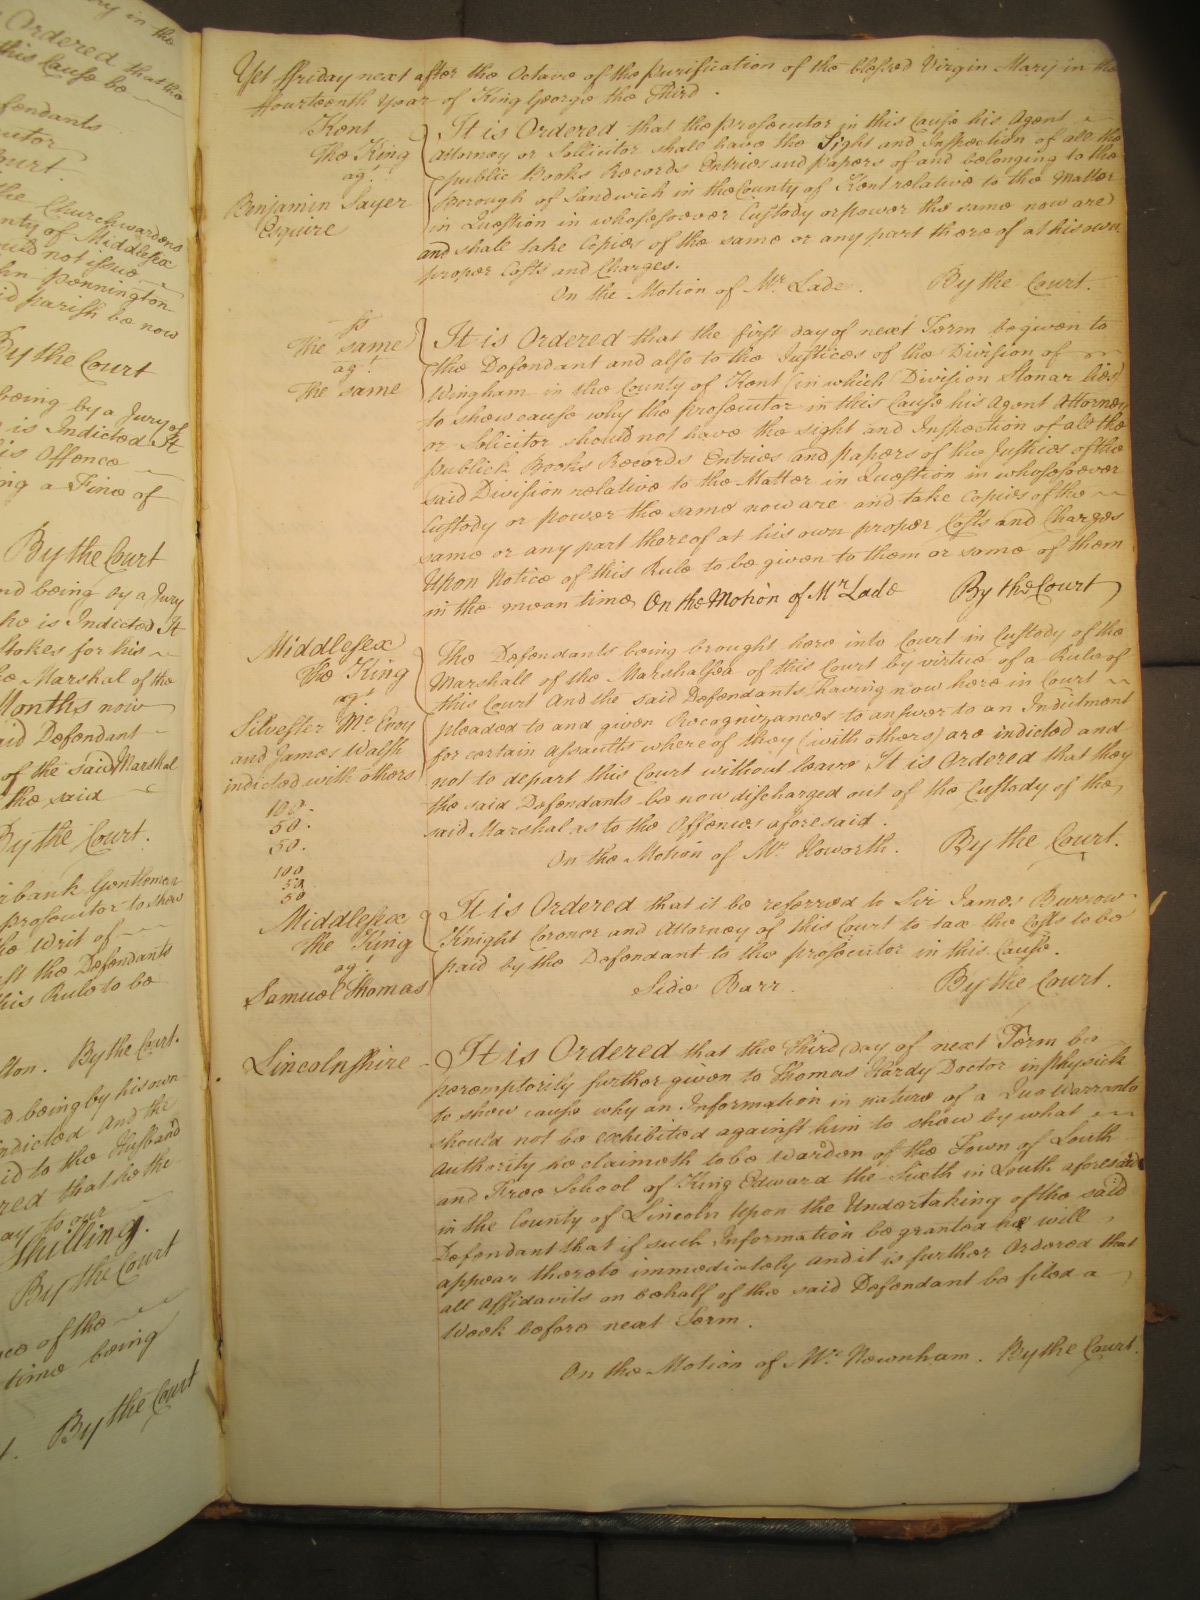 ry in the
Ordered that the
this Cause be
fendants
cutor
Court.
the Churchwardens
nty of Middlesex
ould not issue
hn Pennington
id parish be now
By the Court
being by a Jury of
is Indicted It
is Offence
ing a Fine of
By the Court
nd being by a Jury
he is Indicted It
Stokes for his
e Marshal of the
Months now
aid Defendant
of the said Marshal
the said
By the Court.
rbank Gentleman
prosecutor to shew
the Writ of
st the Defendants
this Rule to be
lton. By the Court.
d being by his own
indicted And the
id to the Husband
red that he the
ay to our
Shilling.
By the Court
ce of the
time being
By the Court
Yet ffriday next after the Octave of the Purification of the blessed Virgin Mary in the
ffourteenth Year of King George the Third.
Kent
The King
agt.
Benjamin Sayer
Esquire
It is Ordered that the prosecutor in this Cause his Agent
Attorney or Sollicitor shall have the Sight and Inspection of all the
public Books Records Entries and papers of and belonging to the
Borough of Sandwich in the County of Kent relative to the Matter
in Question in whosesoever Custody or power the same now are
and shall take Copies of the same or any part thereof at his own
proper Costs and Charges.
On the Motion of Mr. Lade. By the Court.
The same
agt.
The same
It is Ordered that the first day of next Term be given to
the Defendant and also to the Justices of the Division of
Wingham in the County of Kent (in which Division Stonar lies)
to shew cause why the prosecutor in this Cause his Agent Attorney
or Solicitor should not have the sight and Inspection of all the
publick Books Records Entries and papers of the Justices of the
said Division relative to the Matter in Question in whosesoever
Custody or power the same now are and take Copies of the
same or any part thereof at his own proper Costs and Charges
Upon Notice of this Rule to be given to them or some of them
in the mean time On the Motion of Mr Lade By the Court
Middlesex
The King
agt.
Silvester Mc. Evoy
and James Walsh
indicted with others
100.
50.
50.
100
50
50
The Defendants being brought here into Court in Custody of the
Marshall of the Marshalsea of this Court by virtue of a Rule of
this Court And the said Defendants having now here in Court
pleaded to and given Recognizances to answer to an Indictment
for certain Assaults whereof they (with others) are indicted and
not to depart this Court without leave It is Ordered that they
the said Defendants be now discharged out of the Custody of the
said Marshal as to the Offences aforesaid.
On the Motion of Mr. Howorth. By the Court.
Middlesex
The King
agt.
Samuel Thomas
It is Ordered that it be referred to Sir James Burrow
Knight Coroner and Attorney of this Court to tax the Costs to be
paid by the Defendant to the prosecutor in this Cause.
Side Barr. By the Court.
Lincolnshire
It is Ordered that the Third day of next Term be
peremptorily further given to Thomas Hardy Doctor in physick
to shew cause why an Information in nature of a Quo Warranto
should not be exhibited against him to shew by what
authority he claimeth to be Warden of the Town of Louth
and Free School of King Edward the Sixth in Louth aforesaid
in the County of Lincoln Upon the Undertaking of the said
Defendant that if such Information be granted he will
appear thereto immediately and it is further Ordered that
all Affidavits on behalf of the said Defendant be filed a
Week before next Term.
On the Motion of Mr. Newnham. By the Court.